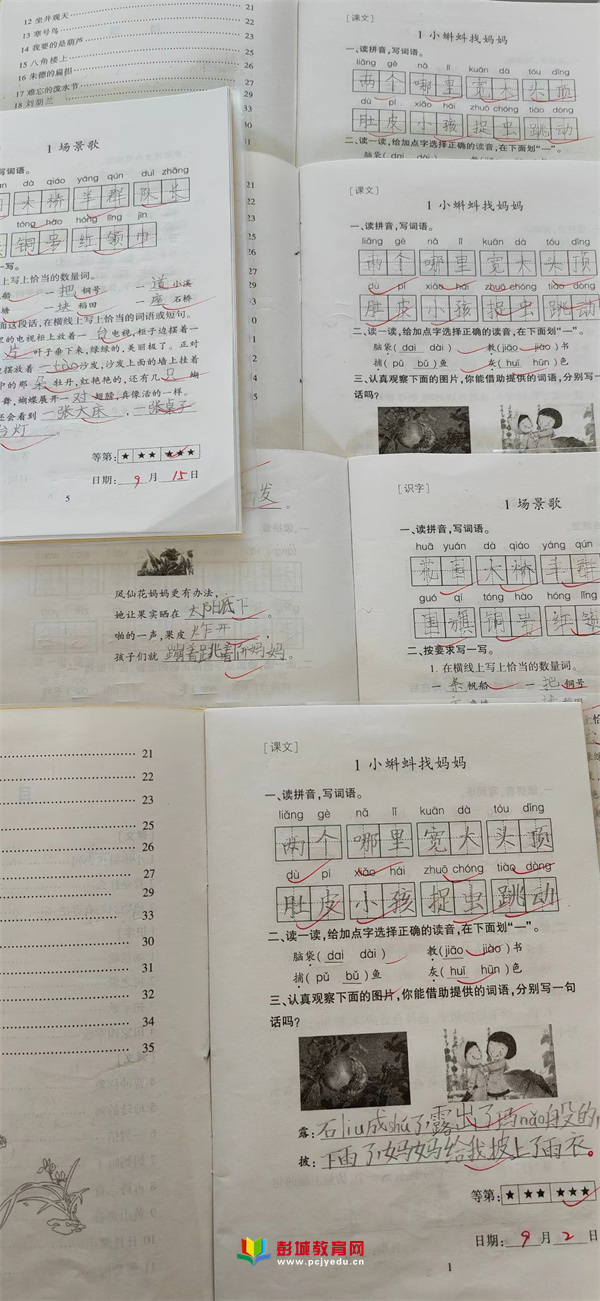 12 坐井观天
13 寒号鸟
14 我要的是葫芦
15 八角楼上
16 朱德的扁担
17 难忘的泼水节
18 刘胡兰
21
22
23
25
26
27
[课文]
1 小蝌蚪找妈妈
一、读拼音,写词语。
liǎng gè nǎ lǐ kuān dà tóu dǐng
两个 哪里 宽大 头顶
dù pí xiǎo hái zhuō chóng tiào dòng
肚皮 小孩 捉虫 跳动
二、读一读,给加点字选择正确的读音,在下面划“—”。
1 场景歌
写词语。
dà qiáo yáng qún duì zhǎng
大桥 羊群 队长
tóng hào hóng lǐng jīn
铜号 红领巾
上写上恰当的数量词。
一 把 铜号 一 道 小溪
一 块 稻田 一 座 石桥
面这段话,在横线上写上恰当的词语或短句。
里的电视柜上放着一 台 电视,柜子边摆着一
叶子垂下来,绿绿的,美丽极了。正对
沙发,沙发上面的墙上挂着
中的那 朵 牡丹,红艳艳的,还有几 只 蝴
舞,蝴蝶展开一 对 翅膀,真像活的一样。
还会看到 一张大床 、一张桌子
台灯 。
等第: ★ ★★ ★★★
日期: 9 月 15 日
5
[课文]
1 小蝌蚪找妈妈
一、读拼音,写词语。
liǎng gè nǎ lǐ kuān dà tóu dǐng
两个 哪里 宽大 头顶
dù pí xiǎo hái zhuō chóng tiào dòng
肚皮 小孩 捉虫 跳动
二、读一读,给加点字选择正确的读音,在下面划“—”。
脑袋(dai dài) 教(jiāo jiào)书
捕(pǔ bǔ)鱼 灰(huī hūn)色
三、认真观察下面的图片,你能借助提供的词语,分别写一
话吗?
凤仙花妈妈更有办法,
她让果实晒在 太阳底下
啪的一声,果皮 炸开 ,
孩子们就 蹦着跳着离开妈妈 。
[识字]
1 场景歌
一、读拼音,写词语。
huā yuán dà qiáo yáng qún
花园 大桥 羊群
guó qí tóng hào hóng lǐng
国旗 铜号 红领
二、按要求写一写。
1. 在横线上写上恰当的数量词。
一 条 帆船 一 把 铜号
21
22
23
25
26
27
29
33
30
31
32
34
35
[课文]
1 小蝌蚪找妈妈
一、读拼音,写词语。
liǎng gè nǎ lǐ kuān dà tóu dǐng
两个 哪里 宽大 头顶
dù pí xiǎo hái zhuō chóng tiào dòng
肚皮 小孩 捉虫 跳动
二、读一读,给加点字选择正确的读音,在下面划“—”。
脑袋(dai dài) 教(jiāo jiào)书
捕(pǔ bǔ)鱼 灰(huī hūn)色
三、认真观察下面的图片,你能借助提供的词语,分别写一句
话吗?
露:石liu成shu了,露出了玛nǎo般的
披:下雨了,妈妈给我披上了雨衣。
等第: ★ ★★ ★★★
日期: 9 月 2 日
1
彭城教育网
www.pcjyedu.cn